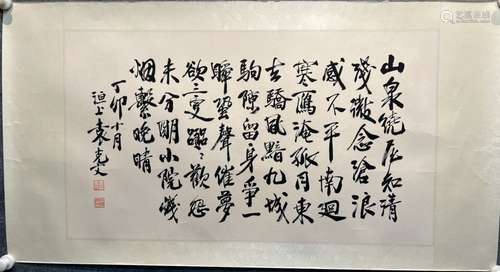 山泉繞屋知清
淺微念滄浪
感不平南迴
寒雁淹孤月東
去驕風黯九城
駒隙留身爭一
瞬蛩聲催夢
欲三更 歡怨
未分明小院
烟繫晚晴
丁卯十月
洹上袁克文